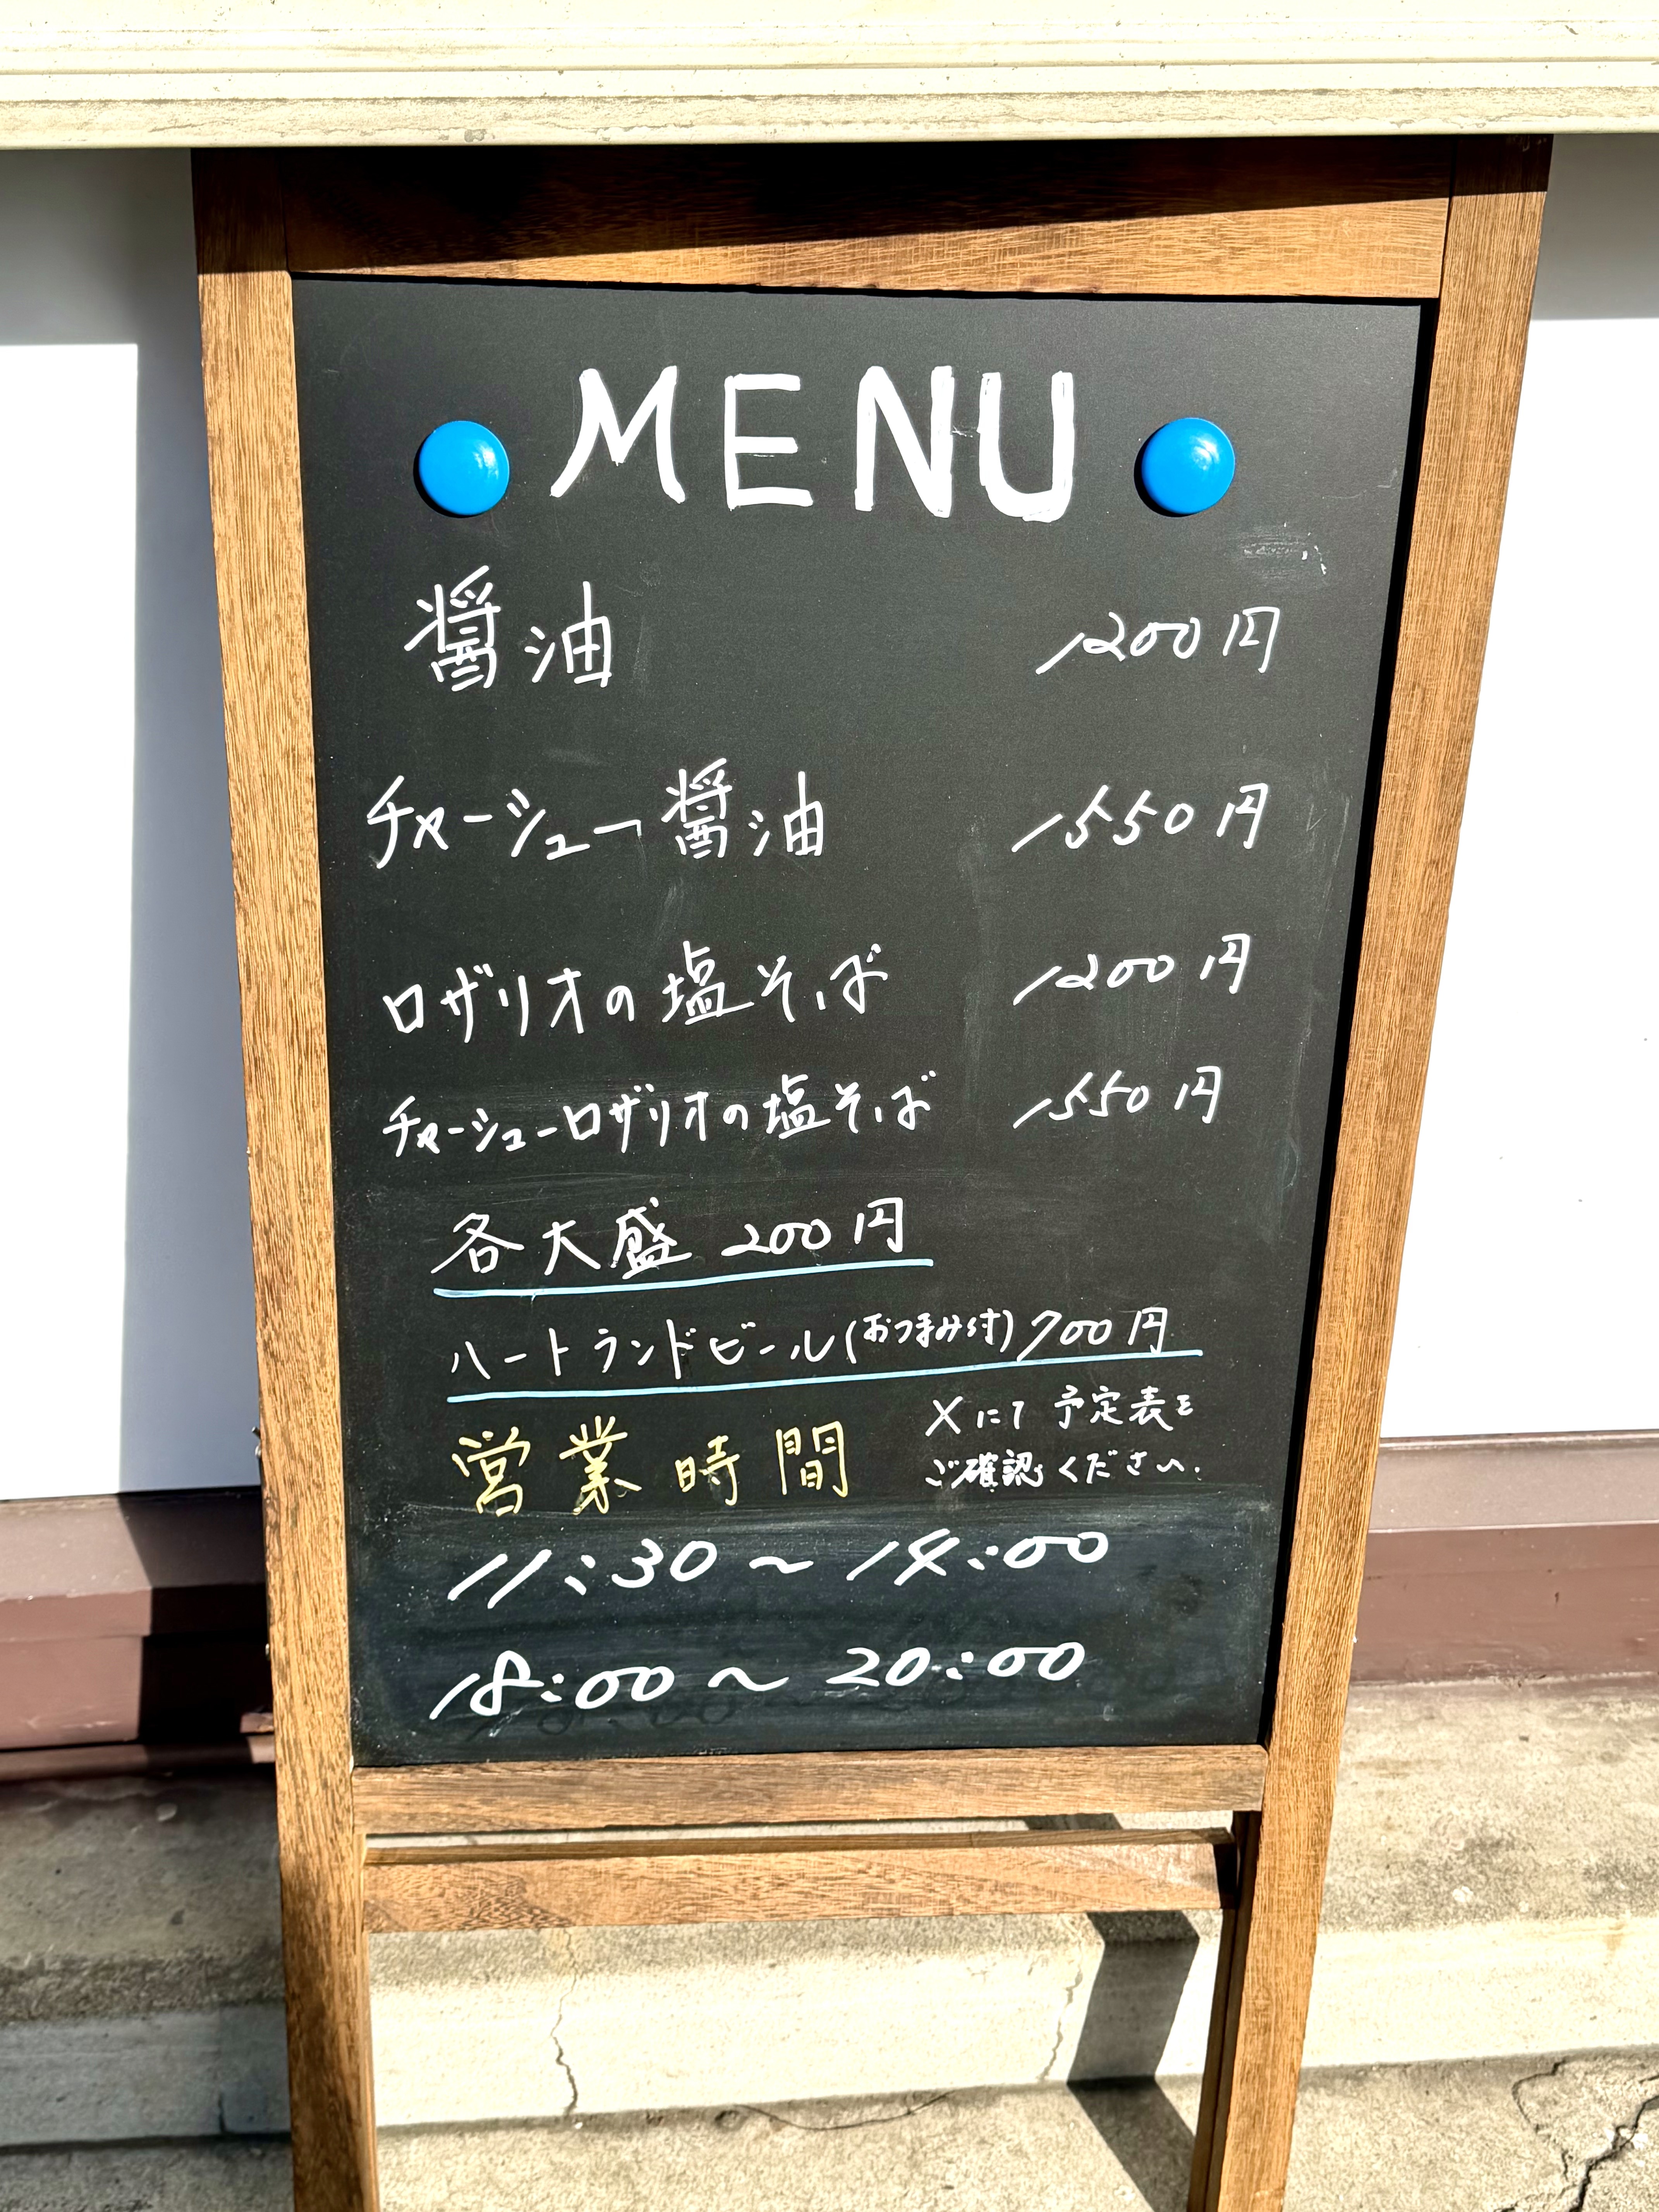 MENU
醤油 1200円
チャーシュー醤油 1550円
ロザリオの塩そば 1200円
チャーシューロザリオの塩そば 1550円
各大盛 200円
ハートランドビール(おつまみ付) 700円
営業時間 Xにて予定表を
ご確認ください.
11:30～14:00
18:00～20:00